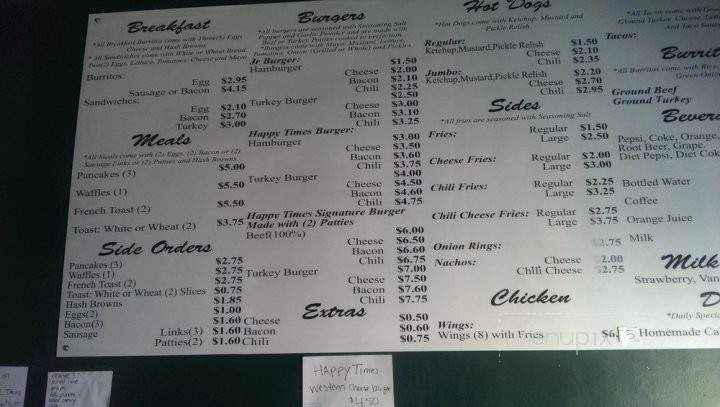 Breakfast
*All Breakfast Burritos come with Three(3) Eggs
Cheese and Hash Browns
* All Sandwiches come with White or Wheat Bread
Two(2) Eggs, Lettuce, Tomatoes, Cheese and Mayo
Burritos:
Egg $2.95
Sausage or Bacon $4.15
Sandwiches:
Egg $2.10
Bacon $2.70
Turkey $3.00
Meals
*All meals come with (2) Eggs, (2) Bacon or (2)
Sausage Links or (2) Patties and Hash Browns.
Pancakes (3) $5.00
Waffles (1) $5.50
French Toast (2) $5.50
Toast: White or Wheat (2) $3.75
Side Orders
Pancakes (3) $2.75
Waffles (1) $2.75
French Toast (2) $2.75
Toast: White or Wheat (2) Slices $0.75
Hash Browns $1.85
Eggs(2) $1.00
Bacon(3) $1.60
Sausage Links(3) $1.60
Patties(2) $1.60
Burgers
*All burgers are seasoned with Seasoning Salt
Pepper and Garlic Powder and are made with
Beef or Turkey. Patties cooked to perfection
*Burgers come with Mayo, Mustard, Lettuce,
Tomatoes, Onion (Grilled or Whole) and Pickles.
Jr Burger:
Hamburger $1.50
Cheese $2.00
Bacon $2.10
Chili $2.25
Turkey Burger $2.50
Cheese $3.00
Bacon $3.10
Chili $3.25
Happy Times Burger:
Hamburger $3.00
Cheese $3.50
Bacon $3.60
Chili $3.75
Turkey Burger $4.00
Cheese $4.50
Bacon $4.60
Chili $4.75
Happy Times Signature Burger
Made with (2) Patties
Beef(100%) $6.00
Cheese $6.50
Bacon $6.60
Chili $6.75
Turkey Burger $7.00
Cheese $7.50
Bacon $7.60
Chili $7.75
Extras
Cheese $0.50
Bacon $0.60
Chili $0.75
Hot Dogs
*Hot Dogs come with Ketchup, Mustard and
Pickle Relish.
Regular: $1.50
Ketchup,Mustard,Pickle Relish
Cheese $2.10
Chili $2.35
Jumbo: $2.20
Ketchup,Mustard,Pickle Relish
Cheese $2.70
Chili $2.95
Sides
*All fries are seasoned with Seasoning Salt
Fries: Regular $1.50
Large $2.50
Cheese Fries: Regular $2.00
Large $2.75
Chili Fries: Regular $2.25
Large $3.25
Chili Cheese Fries: Regular $2.75
Large $3.75
Onion Rings: $2.75
Nachos: Cheese 2.00
Chili Cheese $2.75
Chicken
Wings:
Wings (8) with Fries
Tacos:
Burrit
Ground Beef
Ground Turkey
Bever
Pepsi, Coke, Orange,
Root Beer, Grape,
Diet Pepsi, Diet Cok
Bottled Water
Coffee
Orange Juice
Milk
Milk
Strawberry, Van
D
*Daily Specia
Homemade Ca
HAPPY Times
Western Cheese burger
$4.50